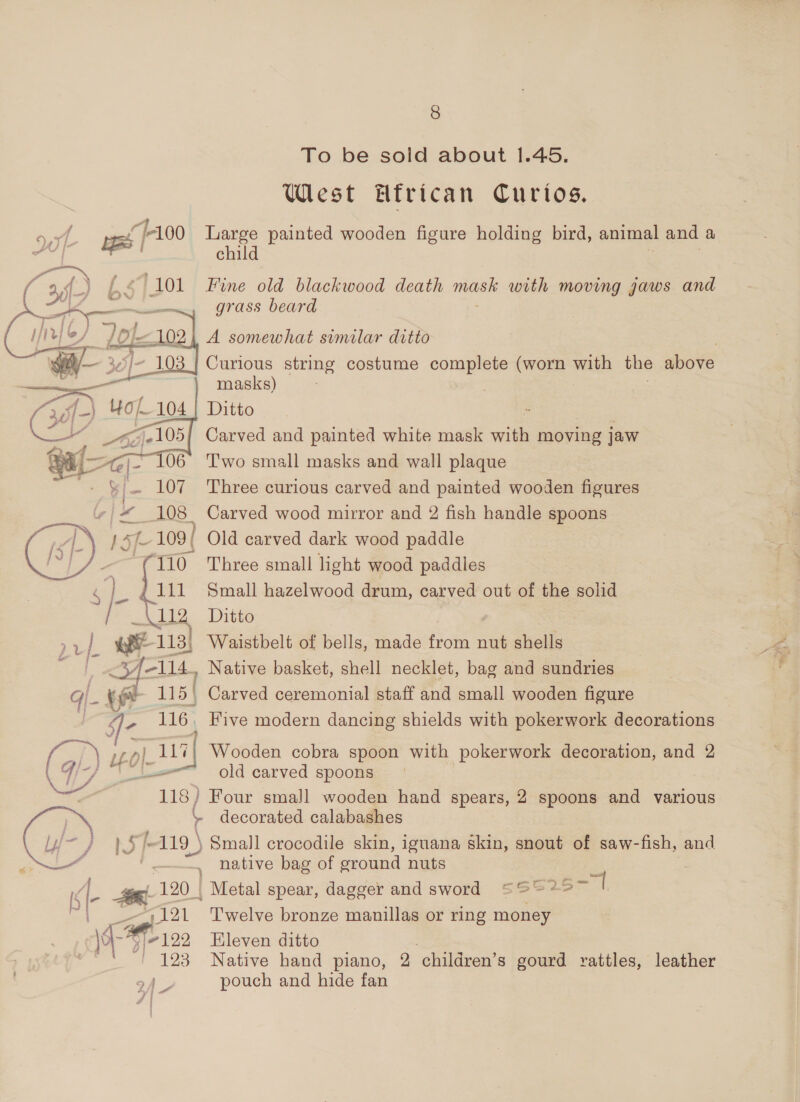 8
To be sold about 1.45.
West African Curios.
100 Large painted wooden figure holding bird, animal and a
child
101 Fine old blackwood death mask with moving jaws and
grass beard
102 A somewhat similar ditto
103 Curious string costume complete (worn with the above
masks)
104 Ditto
105 Carved and painted white mask with moving jaw
106 Two small masks and wall plaque
107 Three curious carved and painted wooden figures
108 Carved wood mirror and 2 fish handle spoons
15/- 15/- 109 Old carved dark wood paddle
110 Three small light wood paddles
5/- 111 Small hazelwood drum, carved out of the solid
112 Ditto
113 Waistbelt of bells, made from nut shells
114 Native basket, shell necklet, bag and sundries
115 Carved ceremonial staff and small wooden figure
116 Five modern dancing shields with pokerwork decorations
117 Wooden cobra spoon with pokerwork decoration, and 2
old carved spoons
118 Four small wooden hand spears, 2 spoons and various
decorated calabashes
15/- 119 Small crocodile skin, iguana skin, snout of saw-fish, and
native bag of ground nuts
120 Metal spear, dagger and sword
121 Twelve bronze manillas or ring money
122 Eleven ditto
123 Native hand piano, 2 children's gourd rattles, leather
pouch and hide fan